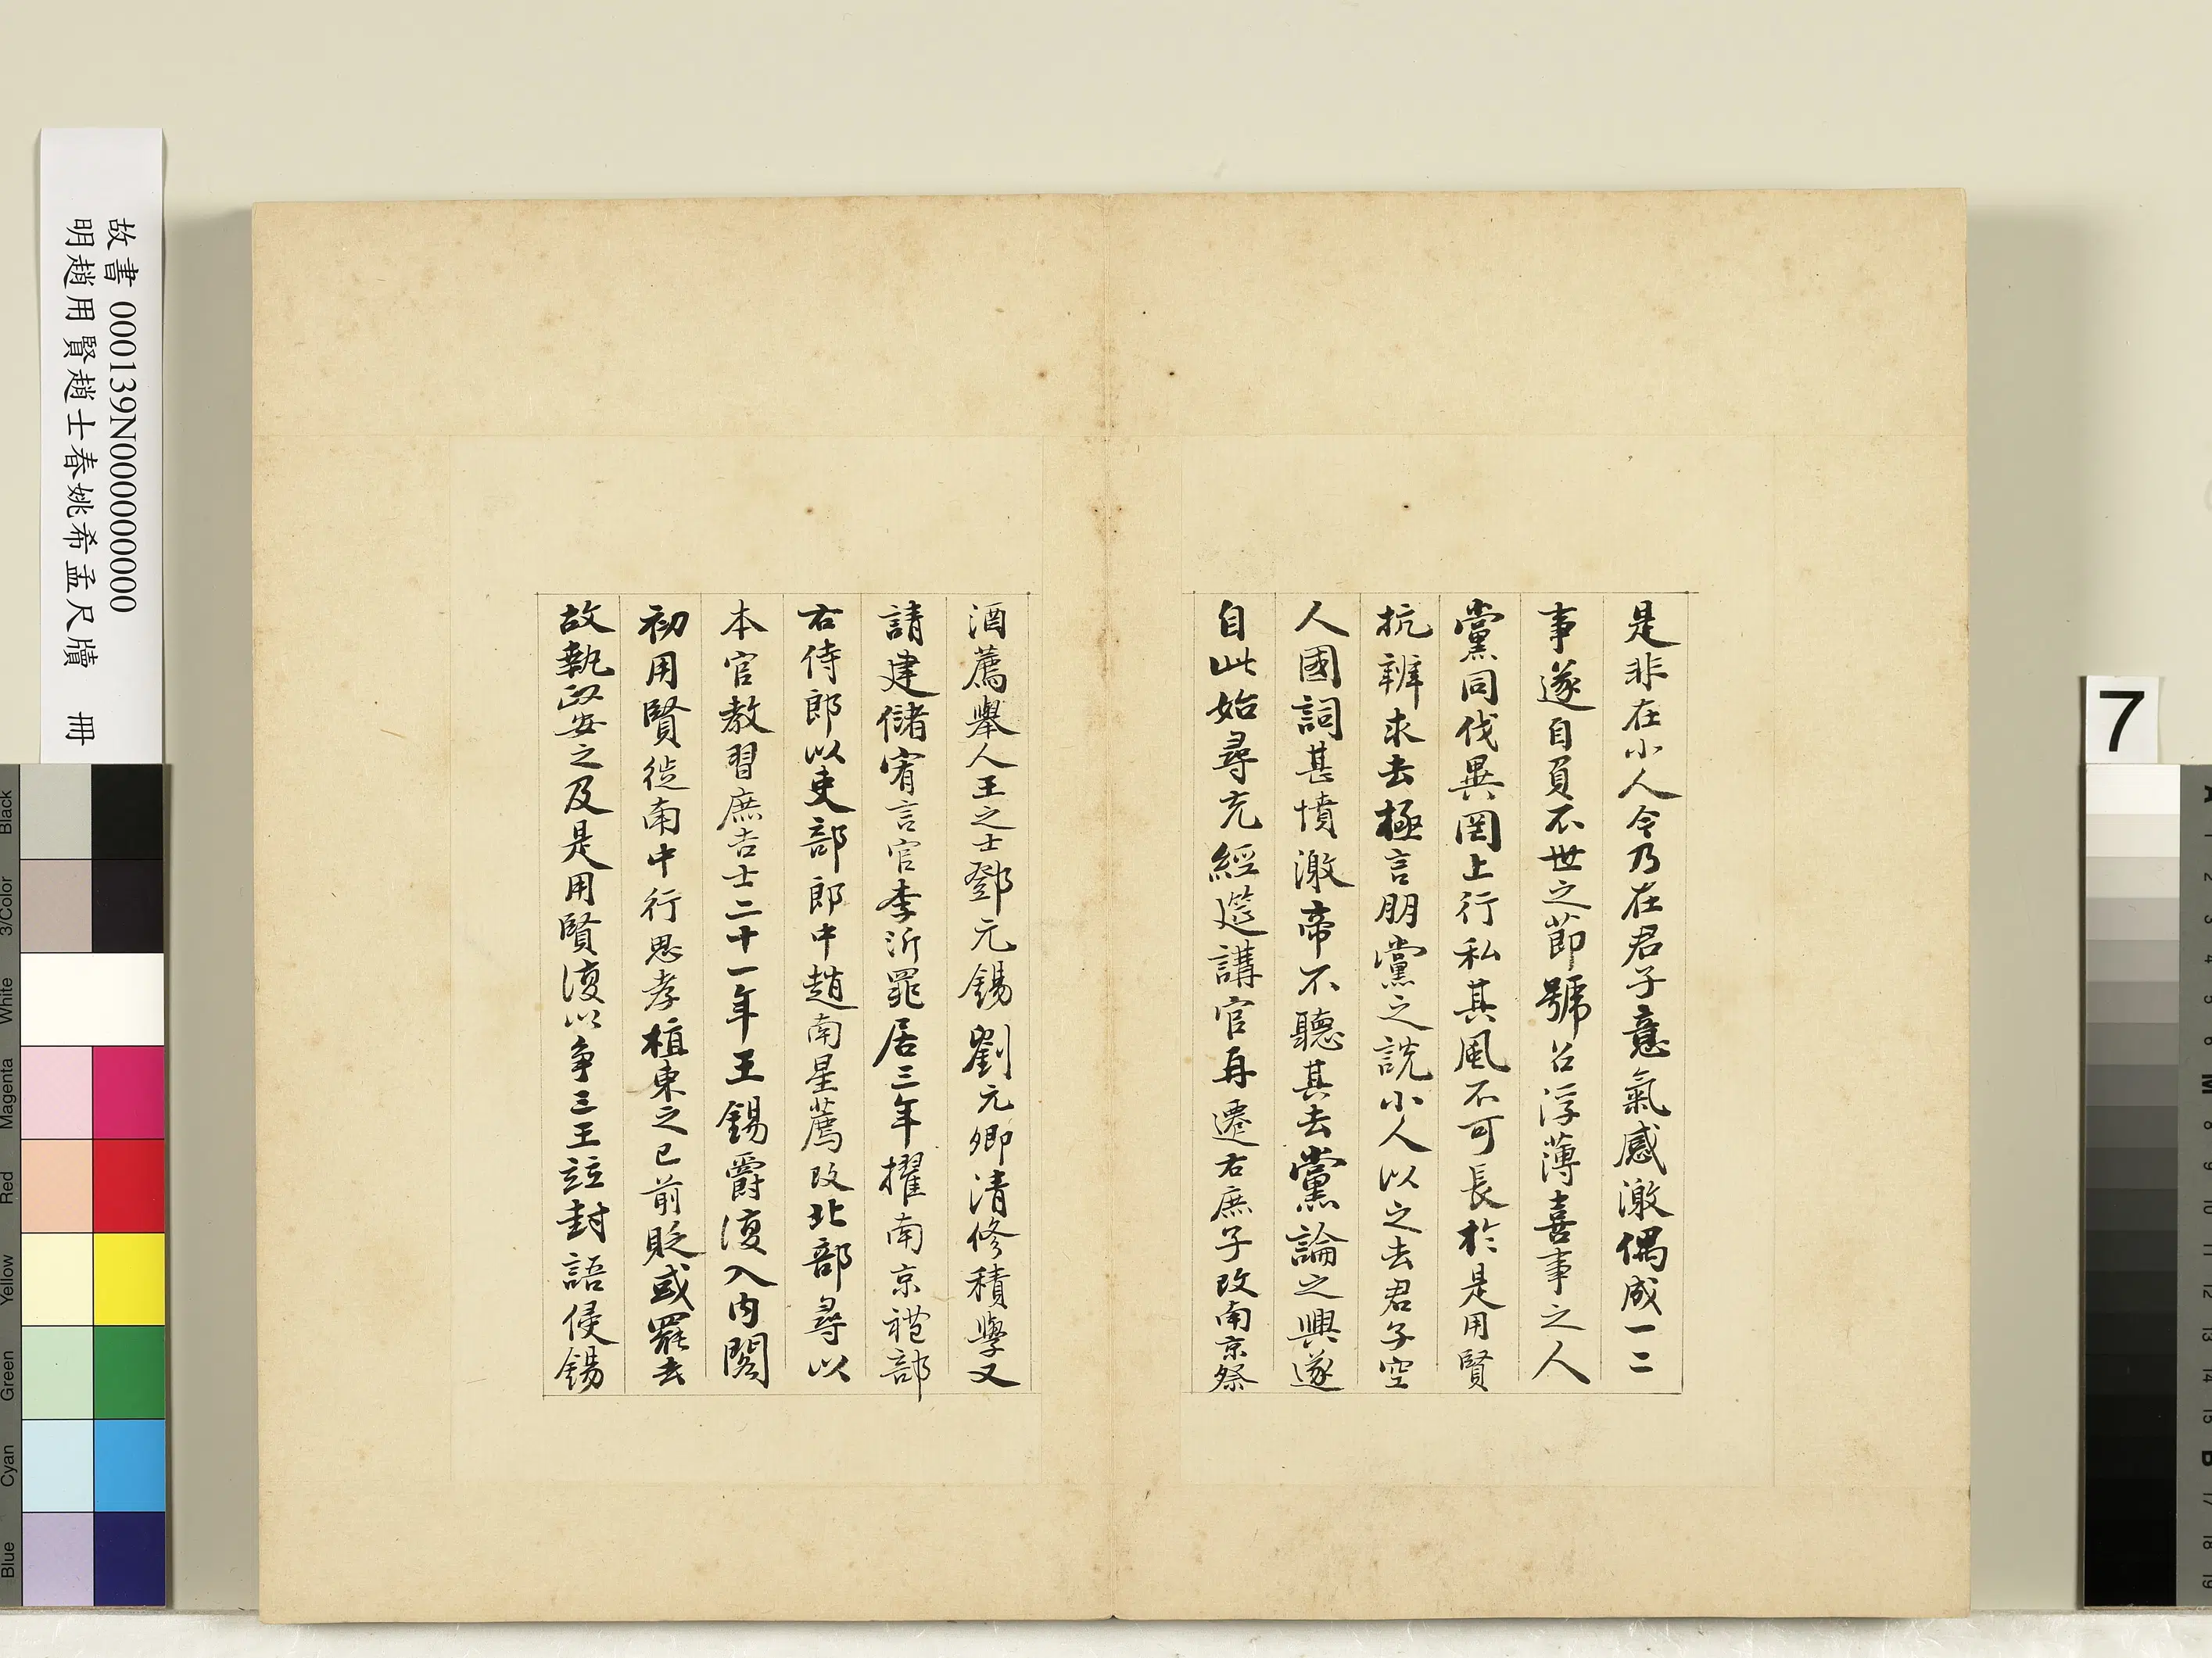 是非在小人今乃在君子意氣感激偶成一二
事遂自負不世之節號召浮薄喜事之人
黨同伐異罔上行私其風不可長於是用賢
抗辨求去極言朋黨之說小人以之去君子空
人國詞甚憤激帝不聽其去黨論之興遂
自此始尋充經筵講官再遷右庶子改南京祭
酒薦舉人王之士鄧元錫劉元卿清修積學又
請建儲宥言官李沂罪居三年擢南京禮部
右侍郎以吏部郎中趙南星薦改北部尋以
本官教習庶吉士二十一年王錫爵復入內閣
初用賢徙南中行思孝植東之已前貶或罷去
故執政安之及是用賢復以爭三王竝封語侵錫
故書 000139N000000000
明趙用賢趙士春姚希孟尺牘 冊
7
Black
3/Color
White
Magenta
Red
Yellow
Green
Cyan
Blue
A
1
2
3
4
5
6
M
8
9
10
11
12
13
14
15
B
17
18
19